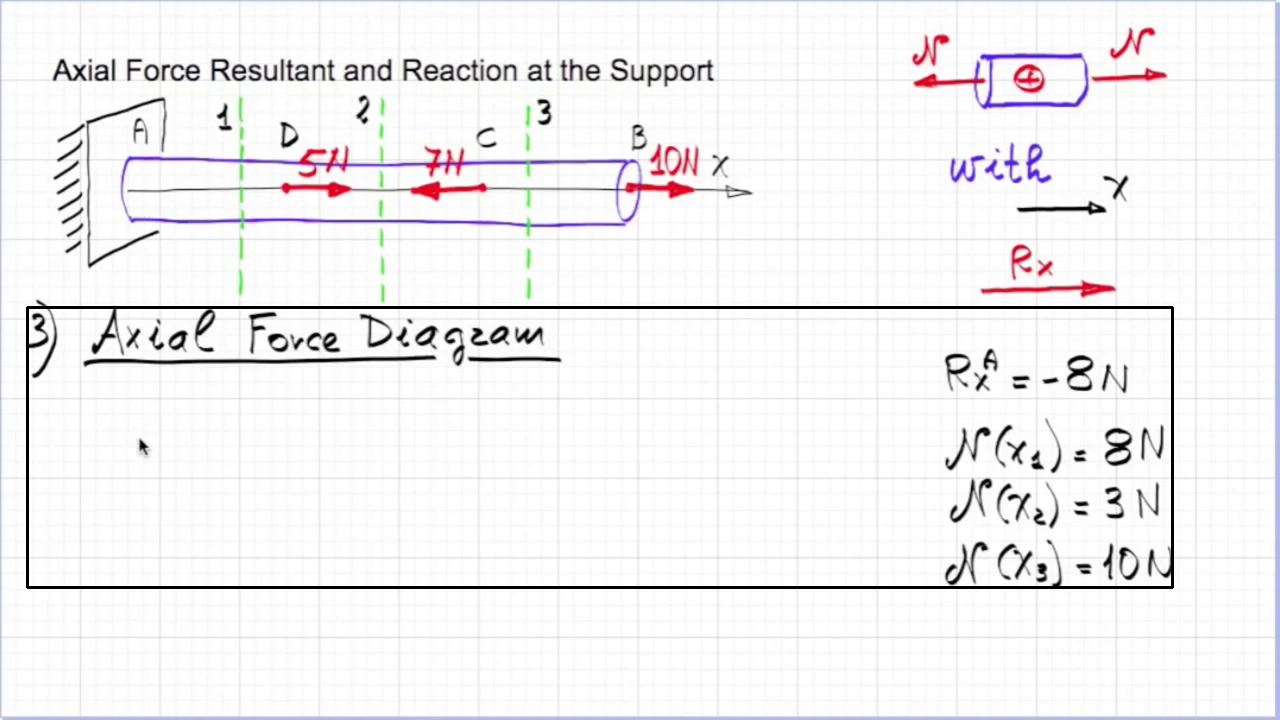 Axial Force Resultant and Reaction at the Support
N N
+
A 1 D 2 C 3 B
5N 7N 10N x
with
x
Rx
3) Axial Force Diagram
Rx^A = -8N
N(x₁) = 8N
N(x₂) = 3N
N(x₃) = 10N